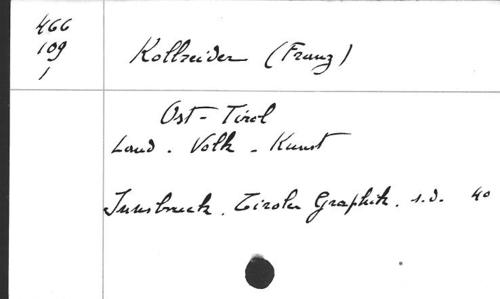 466
109
1
Kollreider (Franz)
Ost-Tirol
Land. Volk - Kunst
Innsbruck. Tiroler Graphik. s.d. 40